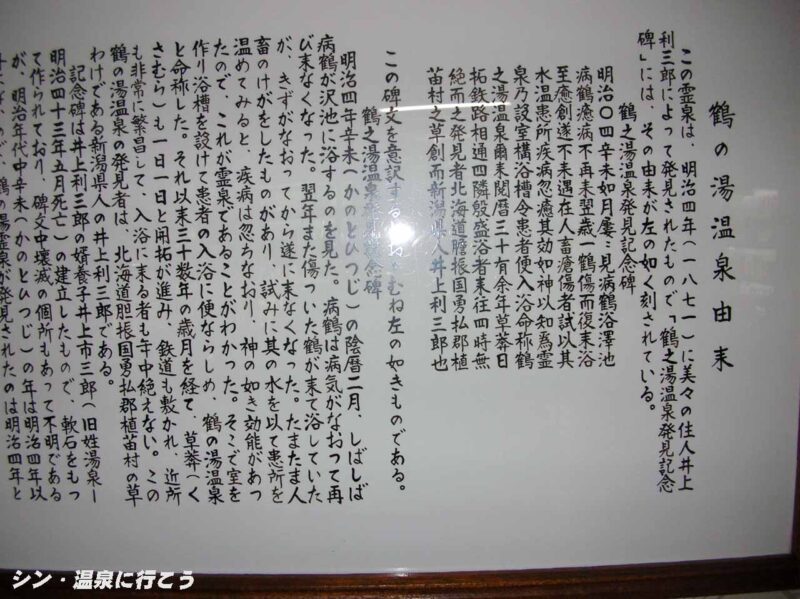 鶴の湯温泉由来
この霊泉は、明治四年(一八七一)に美々の住人井上
利三郎によって発見されたもので「鶴之湯温泉発見記念
碑」には、その由来が左の如く刻されている。
鶴之湯温泉発見記念碑
明治〇四辛未如月屡々見病鶴浴澤池
病鶴癒病不再未翌歳一鶴傷而復来浴
至癒創遂不未遇在人畜瘡傷者試以其
水温患所疾病忽癒其効如神以知為霊
泉乃設室構浴槽令患者便入浴命称鶴
之湯温泉爾来閲暦三十有余年草莽日
拓鉄路相通四隣殷盛浴者来往四時無
絶而之発見者北海道膽振国勇払郡植
苗村之草創而新潟県人井上利三郎也
この碑文を意訳する おおむね左の如きものである。
鶴之湯温泉発見記念碑
明治四年辛未(かのとひつじ)の陰暦二月、しばしば
病鶴が沢池に浴するのを見た。病鶴は病気がなおって再
び来なくなった。翌年また傷ついた鶴が来て浴していた
が、きずがなおってから遂に来なくなった。たまたま人
畜のけがをしたものがあり、試みに其の水を以て患所を
温めてみると、疾病は忽ちなおり、神の如き効能があっ
たので、これが霊泉であることがわかった。そこで室を
作り浴槽を設けて患者の入浴に便ならしめ、鶴の湯温泉
と命称した。それ以来三十数年の歳月を経て、草莽(く
さむら)も一日一日と開拓が進み、鉄道も敷かれ、近所
も非常に繁昌して、入浴に来る者も年中絶えない。この
鶴の湯温泉の発見者は、北海道胆振国勇払郡植苗村の草
わけである新潟県人の井上利三郎である。
記念碑は井上利三郎の婿養子井上市三郎(旧姓湯泉ー
明治四十三年五月死亡)の建立したもので、軟石をもっ
て作られており、碑文中壊滅の個所もあって不明である
が、明治年代中辛未(かのとひつじ)の年は明治四年以
鶴の湯霊泉が発見されたのは明治四年と
シン・温泉に行こう